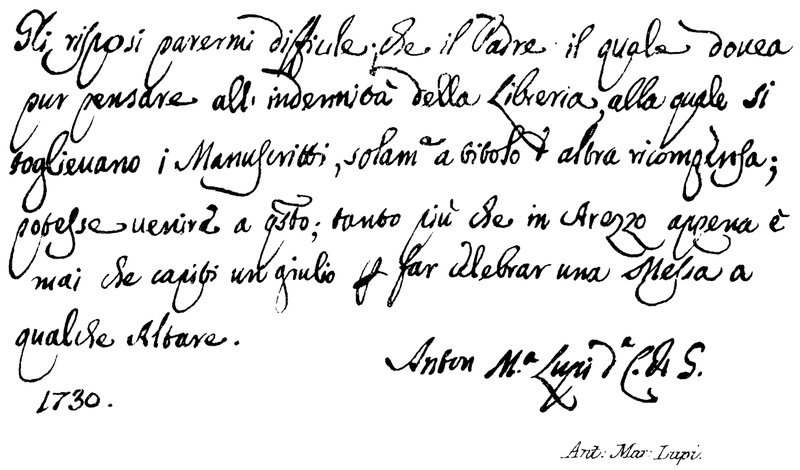 Gli risposi parermi difficile, che il Padre il quale dovea
pur pensare all' indennità della Libreria, alla quale si
toglievano i Manuscritti, solam.e a titolo d' altra ricompensa;
potesse venire a q̃sto; tanto più che in Arezzo appena è
mai che capiti un giulio ꝑ far celebrar una Messa a
qualche Altare.
Anton M.a Lupi d.a C. di G.
1730.
Ant: Mar: Lupi.